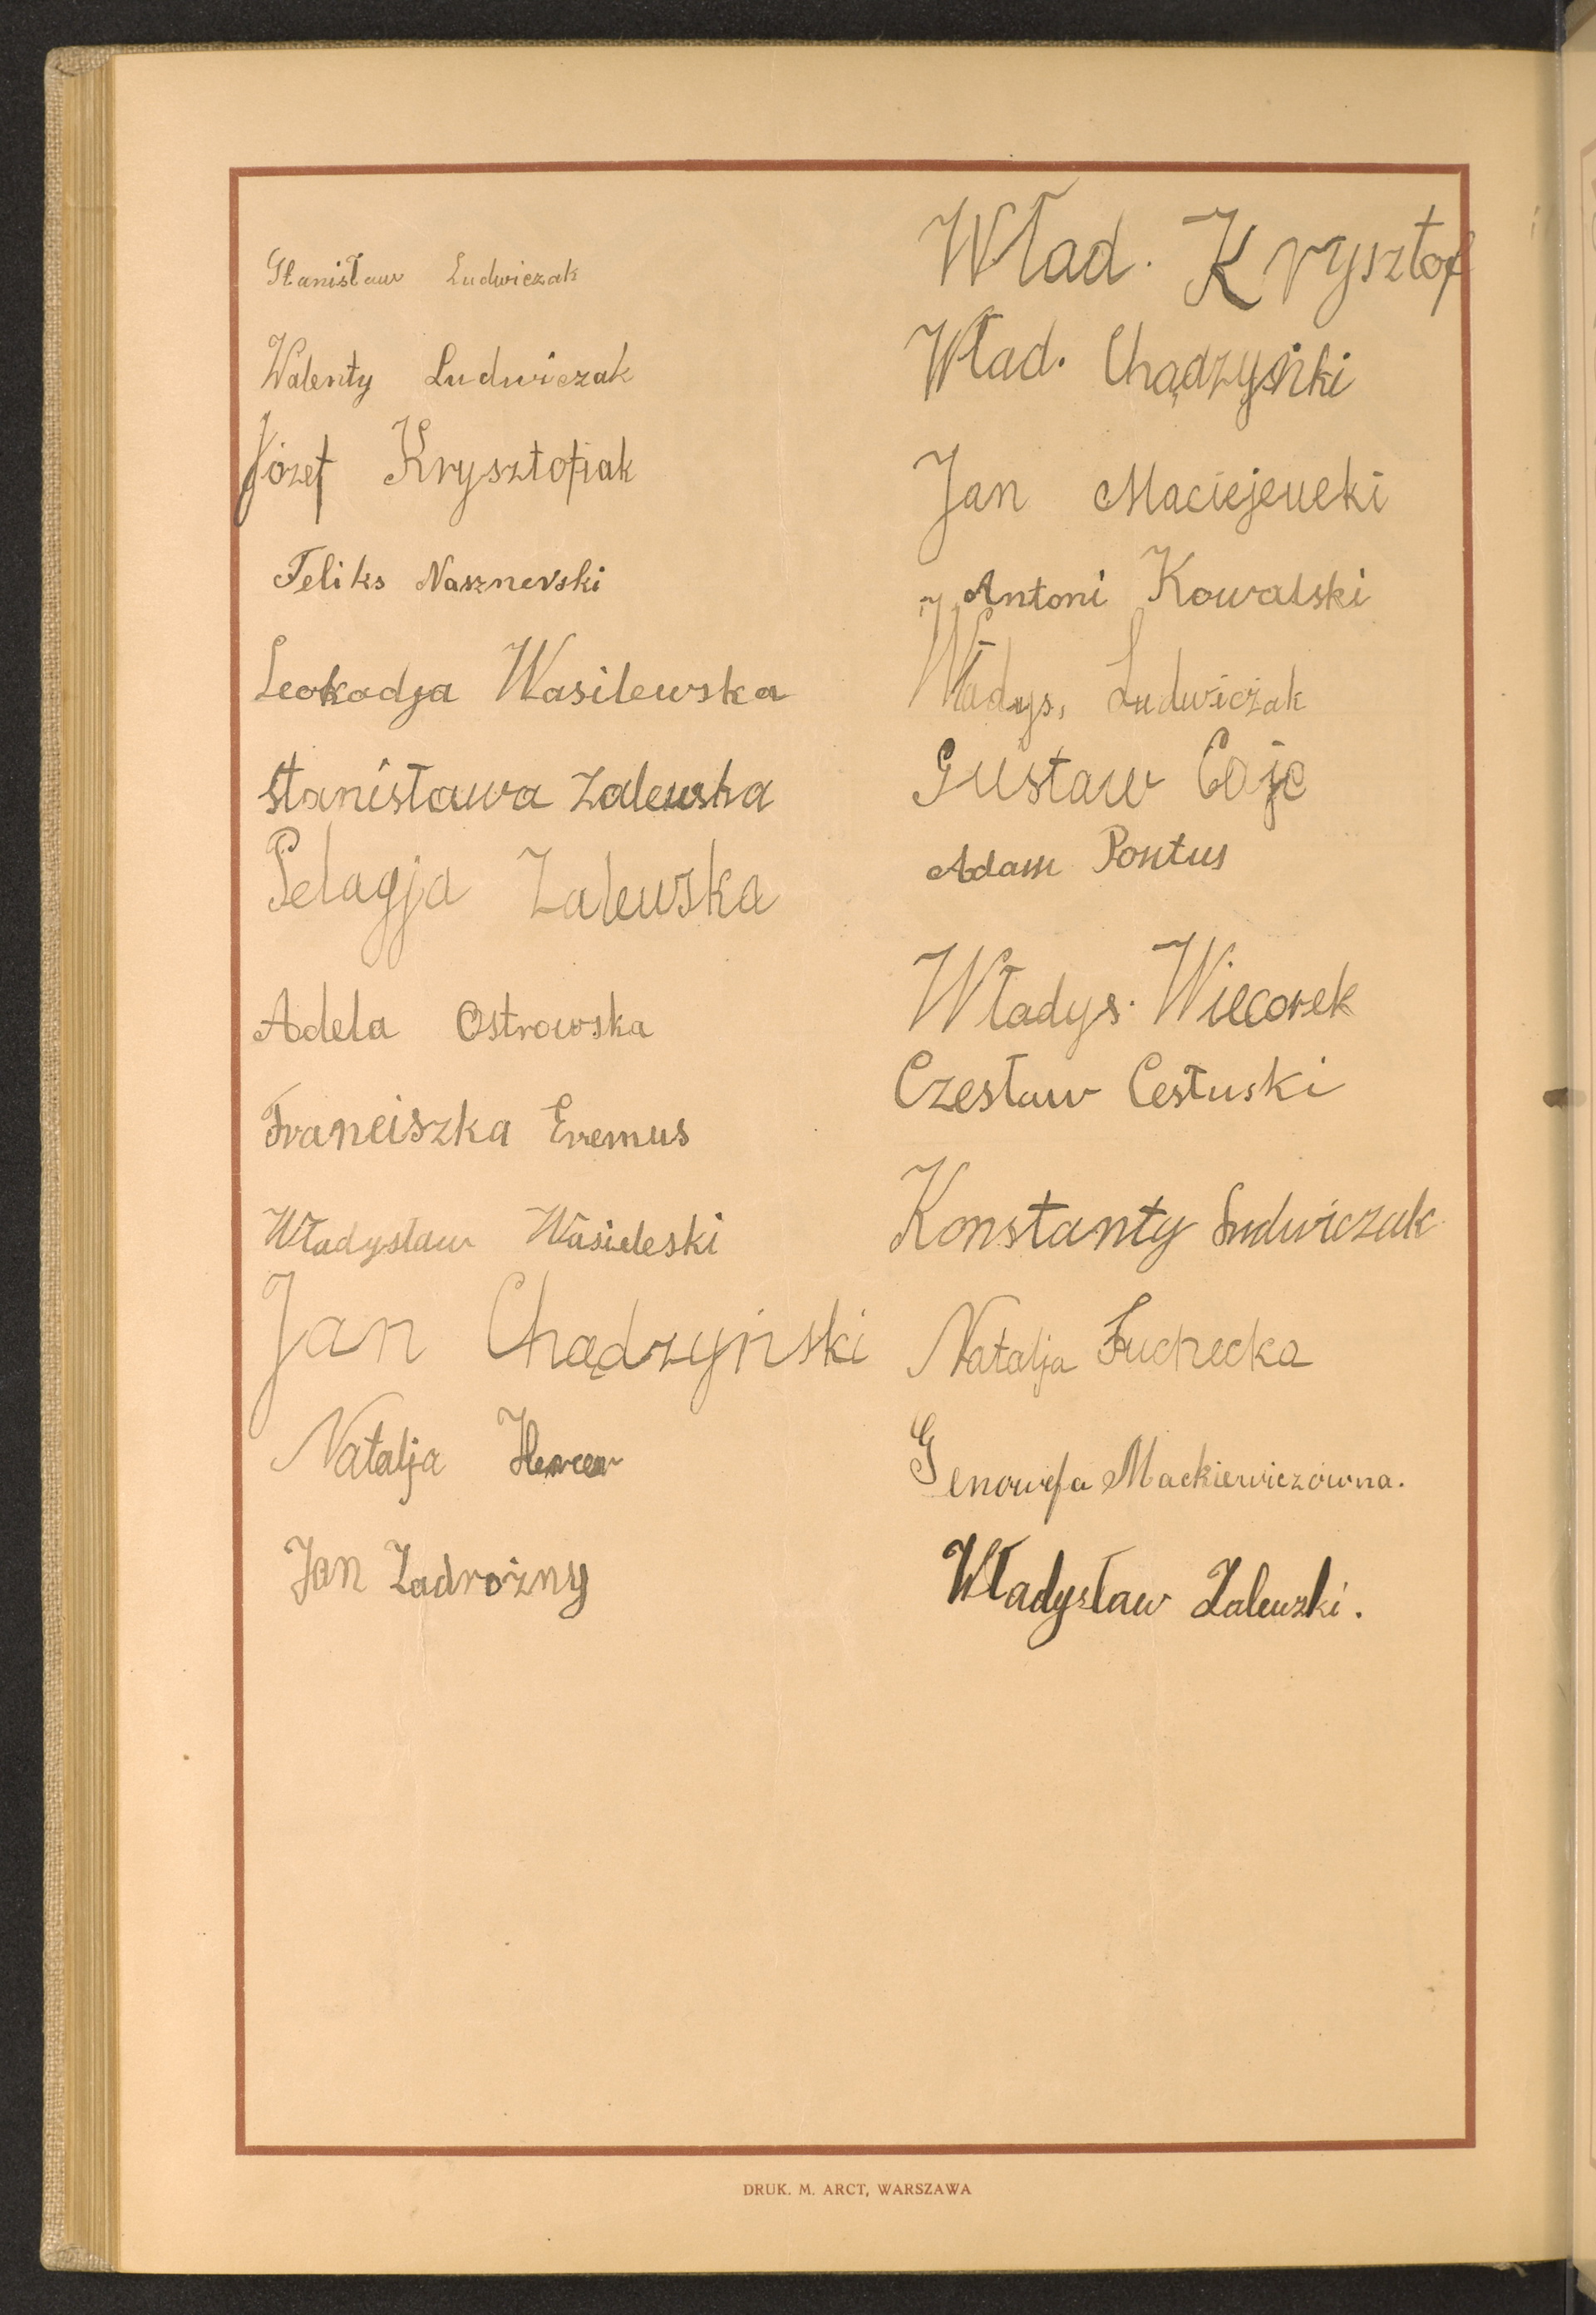 Stanisław Ludwiczak
Walenty Ludwiczak
Józef Krysztofiak
Feliks Nasznevski
Leokadja Wasilewska
Stanisława Zalewska
Pelagja Zalewska
Adela Ostrowska
Franciszka Eremus
Władysław Wasieleski
Jan Chądzyński
Natalja
Jan Zadrożny
Wład. Krysztof
Wład. Chądzyński
Jan Maciejeueki
Antoni Kowalski
Władys, Ludwiczak
Gustaw
Adam Pontus
Władys. Wilcorek
Czesław Cesłuski
Konstanty Ludwiczak
Natalja
Genowefa Mackiewiczówna.
Władysław Zalewski.
DRUK. M. ARCT, WARSZAWA